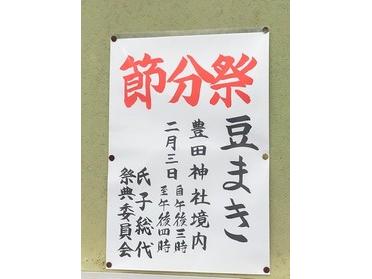 節分祭
豆まき
豊田神社境内
二月三日
自午後三時
至午後四時
氏子総代
祭典委員会